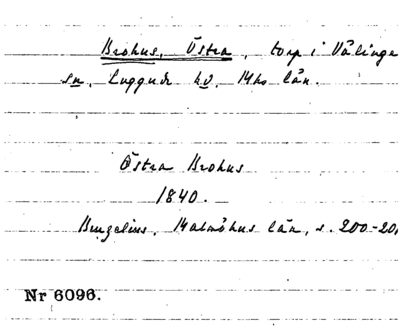 Brohus, Östra, torp i Välinge
sn, Luggude hd, Mhs län.
Östra Brohus
1840.
Bruzelius, Malmöhus län, s. 200-20
Nr 6096.